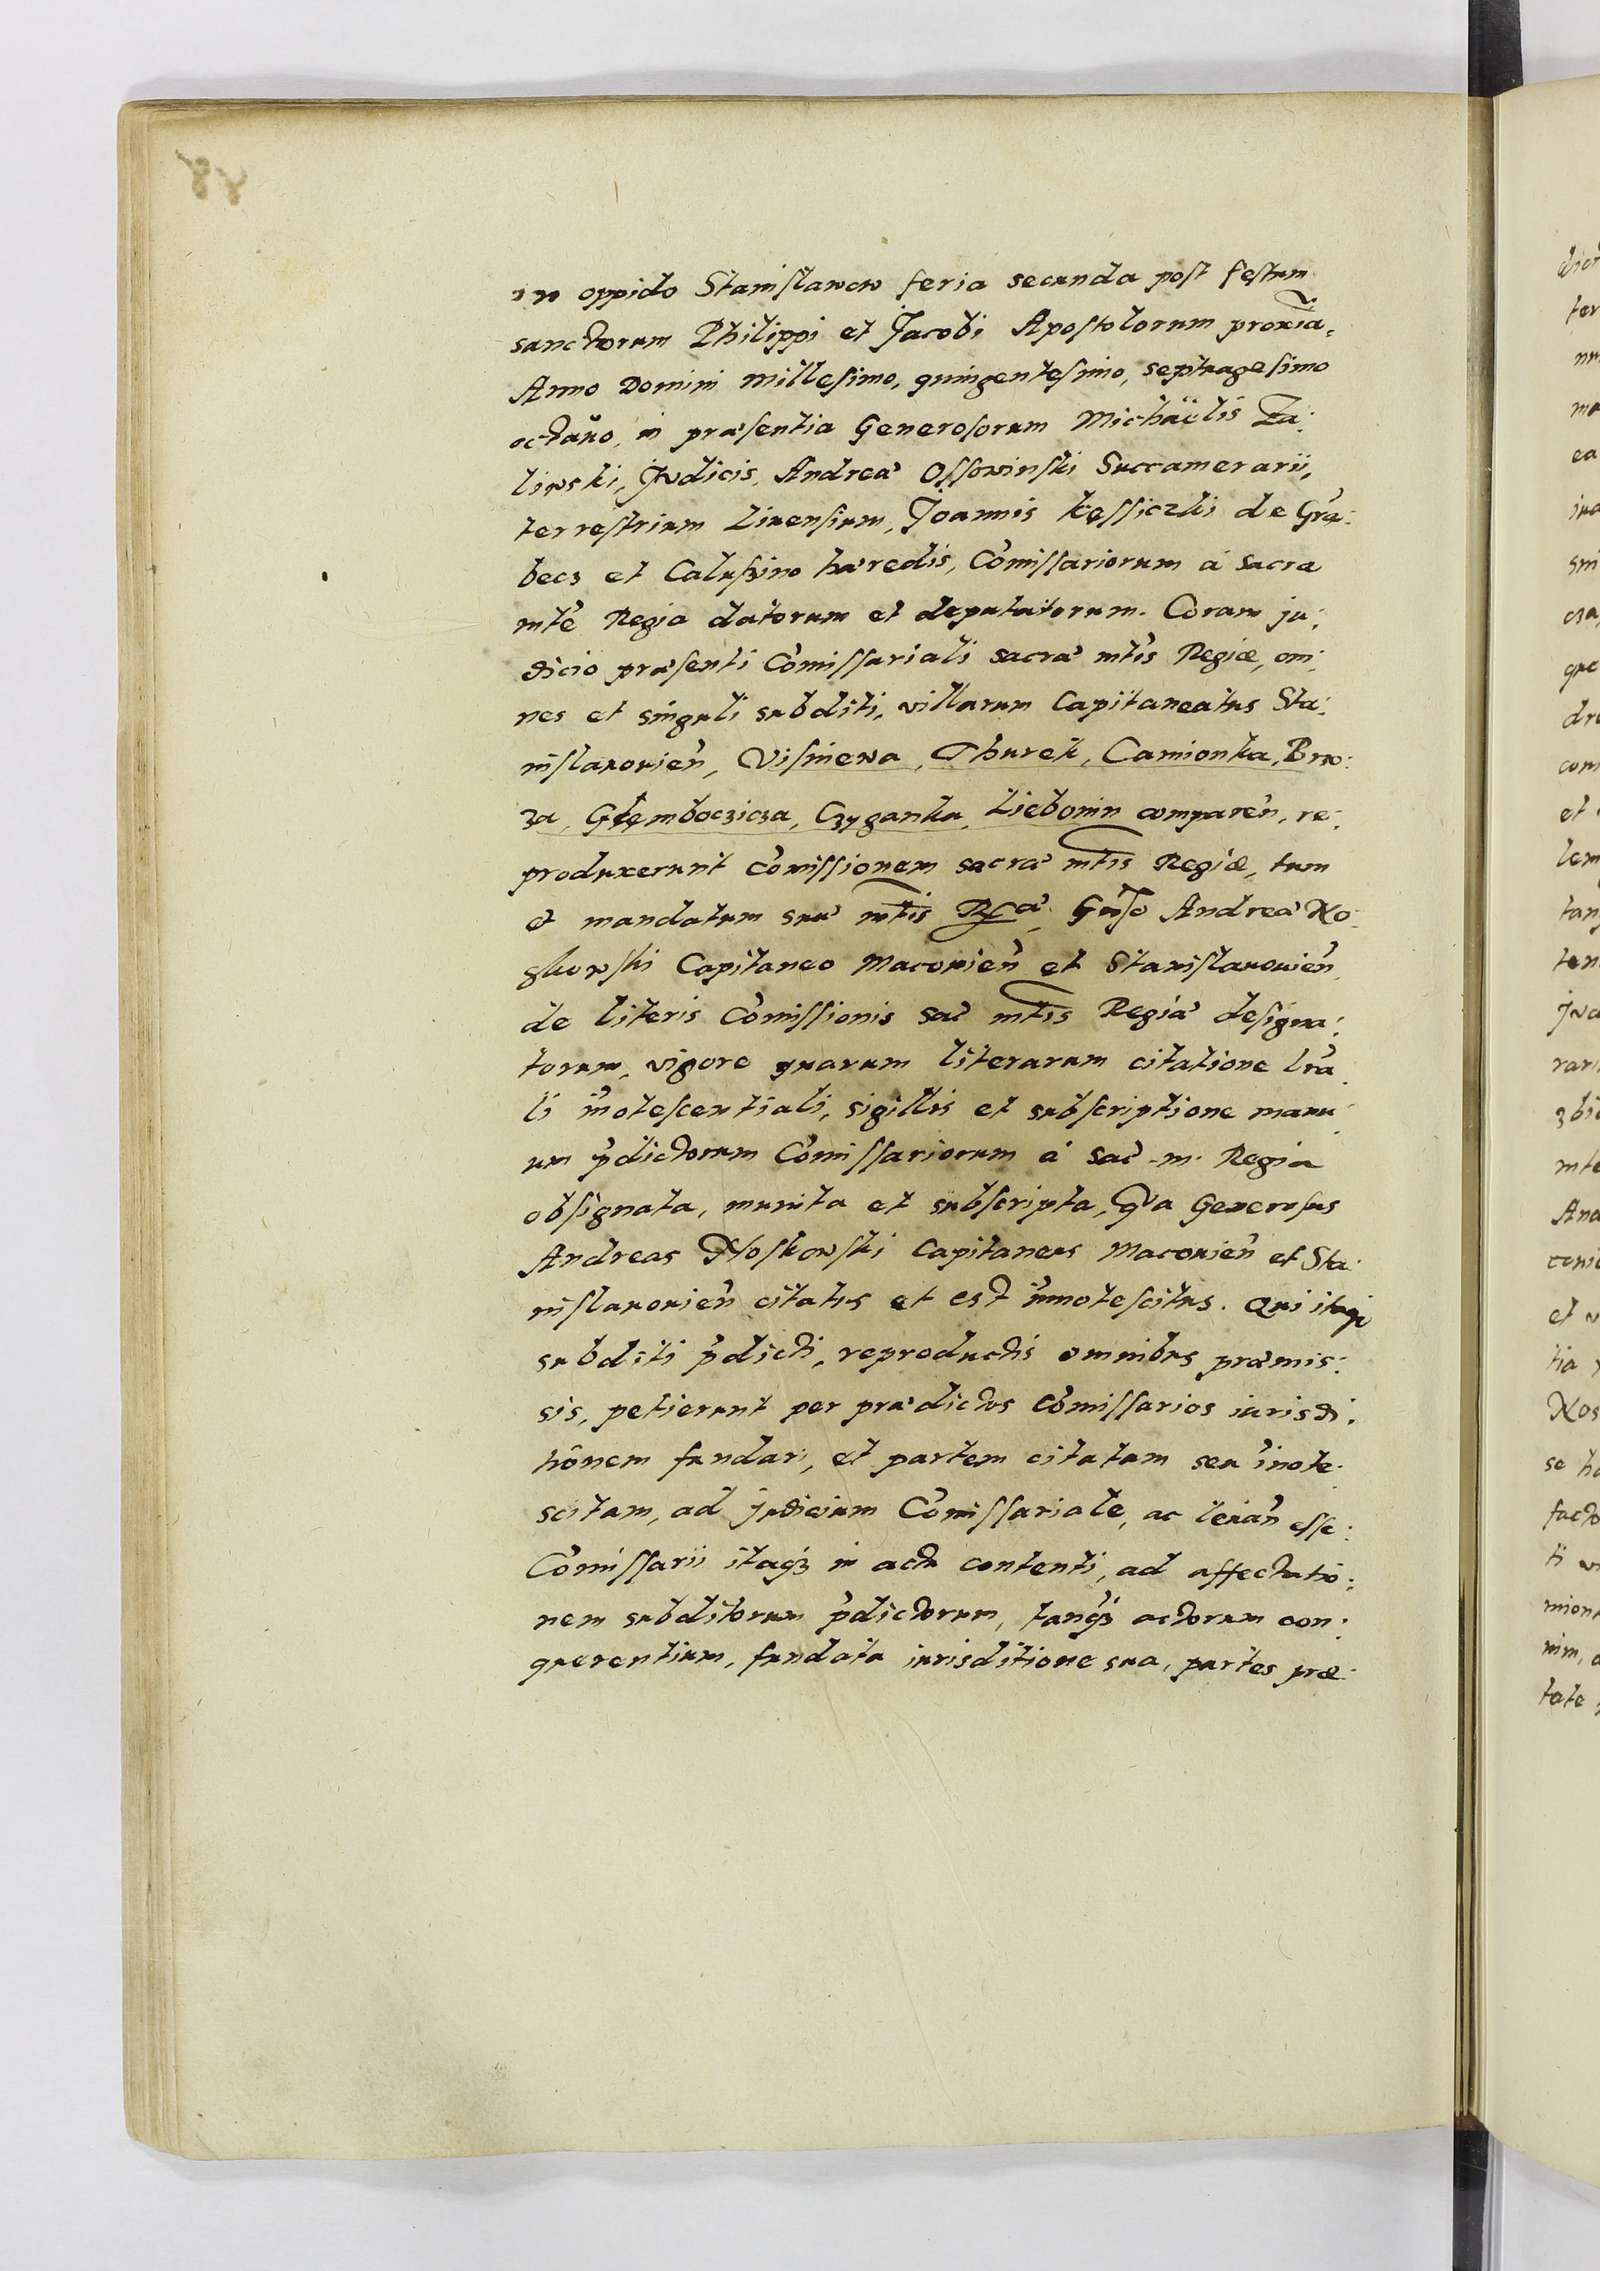 in oppido Stanislawow feria secunda post festum
sanctorum Philippi et Jacobi Apostolorum proxīa,
Anno Domini millesimo, quingentesimo, septuagesimo
octauo, in præsentia Generosorum Michaëlis Za:
liwski, Judicis, Andreæ Ossowinski Succamerarii,
terrestrium Liuensium, Joannis Kessiczki de Grę:
becz et Caluszino hæredis, Com̃issariorum à sacra
mte Regia datorum et deputatorum. Coram ju:
dicio præsenti Com̃issariali sacræ mtis Regiæ, om:
nes et singuli subditi, villarum Capitaneatus Sta:
nislauouień, Visniewa, Thurek, Camionka, Brzo:
za, Głęmbocziza, Czyganka, Liebonin compareń, re:
produxerunt com̃issionem sacræ mtis Regiæ, tum
et mandatum suæ mtis Ræ, Gnso Andreæ No:
skowski Capitaneo Macouień et Stanislauouień
de literis Com̃issionis sac mtis Regiæ designa:
torum, vigore quarum literarum citatione lrã:
li in̄otescentiali, sigillis et subscriptione manu:
um p̄dictorum Com̃issariorum à sac m. Regia
obsignata, munita et subscripta, qua Generosus
Andreas Noskowski Capitaneus Macouień et Sta:
nislauouień citatus et est innotescitus. Qui itaq
subditi p̄dicti, reproductis omnibus præmis:
sis, petierunt per prædictos Com̃issarios iurisdi:
tiōnem fundari, et partem citatam seu in̄ote:
scitam, ad judicium Com̃issariale, ac esse:
Com̃issarii itaqȝ in actu contenti, ad affectatio:
nem subditorum p̄dictorum, tanqȝ actorum con:
querentium, fundata iurisditione sua, partes præ: